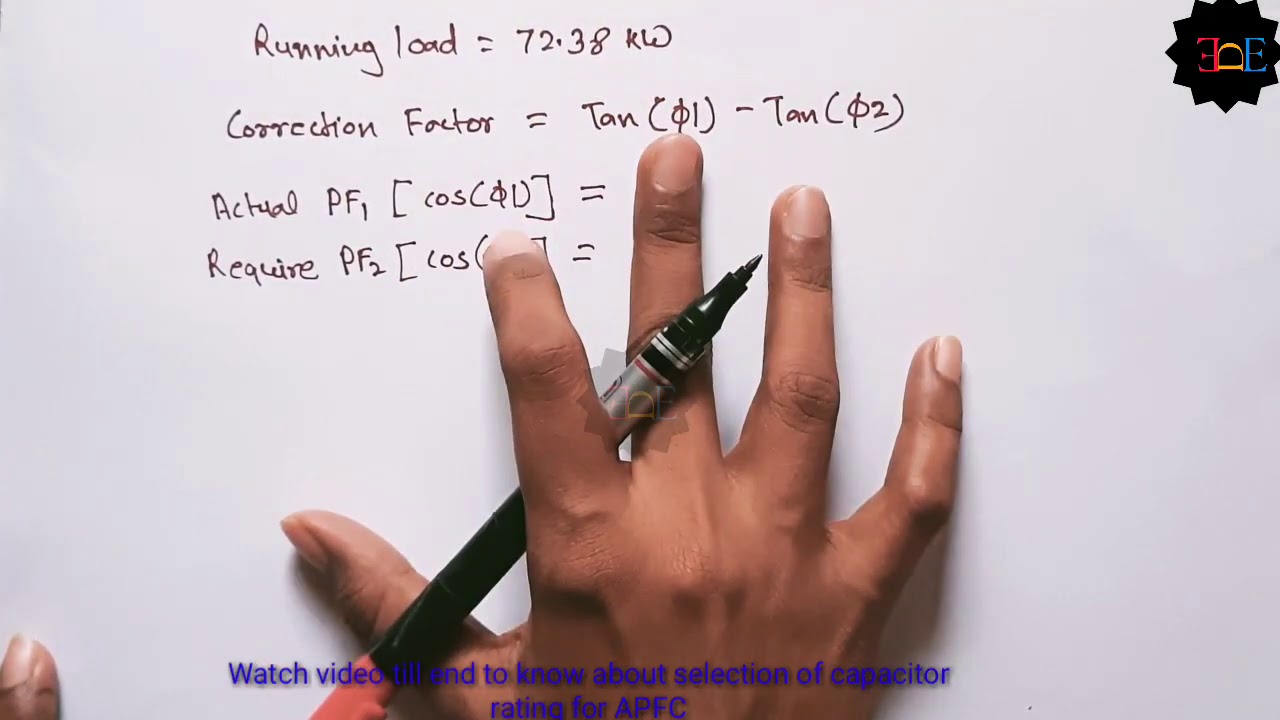 Running load = 72.38 kW
EDE
Correction Factor = Tan(φ1) - Tan(φ2)
Actual PF₁ [cos(φ1)] =
Require PF₂ [cos( ] =
EDE
Watch video till end to know about selection of capacitor
rating for APFC